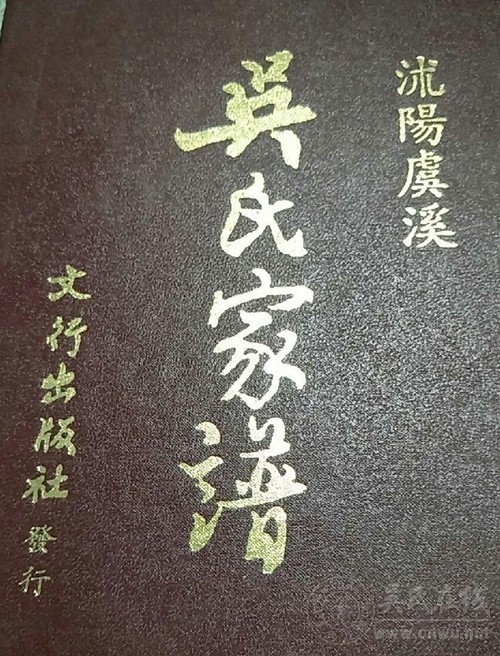 沭陽虞溪
吳氏家譜
文行出版社發行
吴氏在线
www.cnwu.net